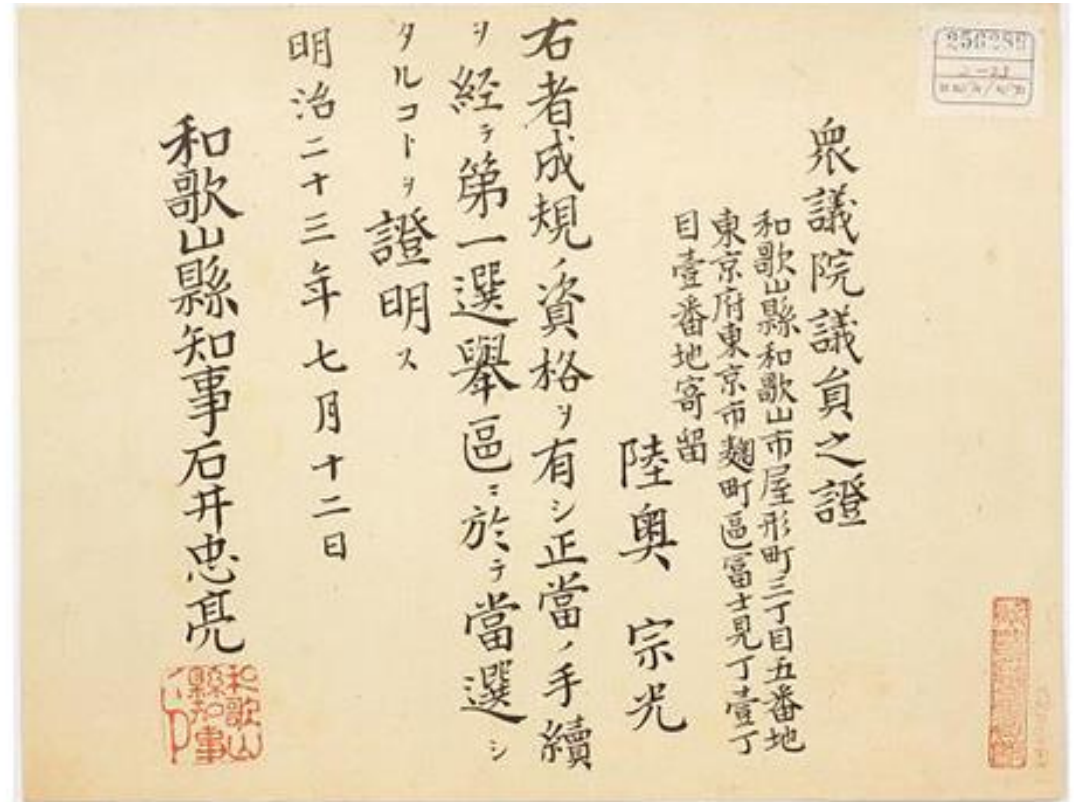 衆議院議員之證
和歌山縣和歌山市屋形町三丁目五番地
東京府東京市麹町區冨士見丁壹丁
目壹番地寄留
陸奥 宗光
右者成規ノ資格ヲ有シ正當ノ手續
ヲ経テ第一選舉區ニ於テ當選シ
タルコトヲ證明ス
明治二十三年七月十二日
和歌山縣知事石井忠亮
和歌山
縣知事
之印
256289